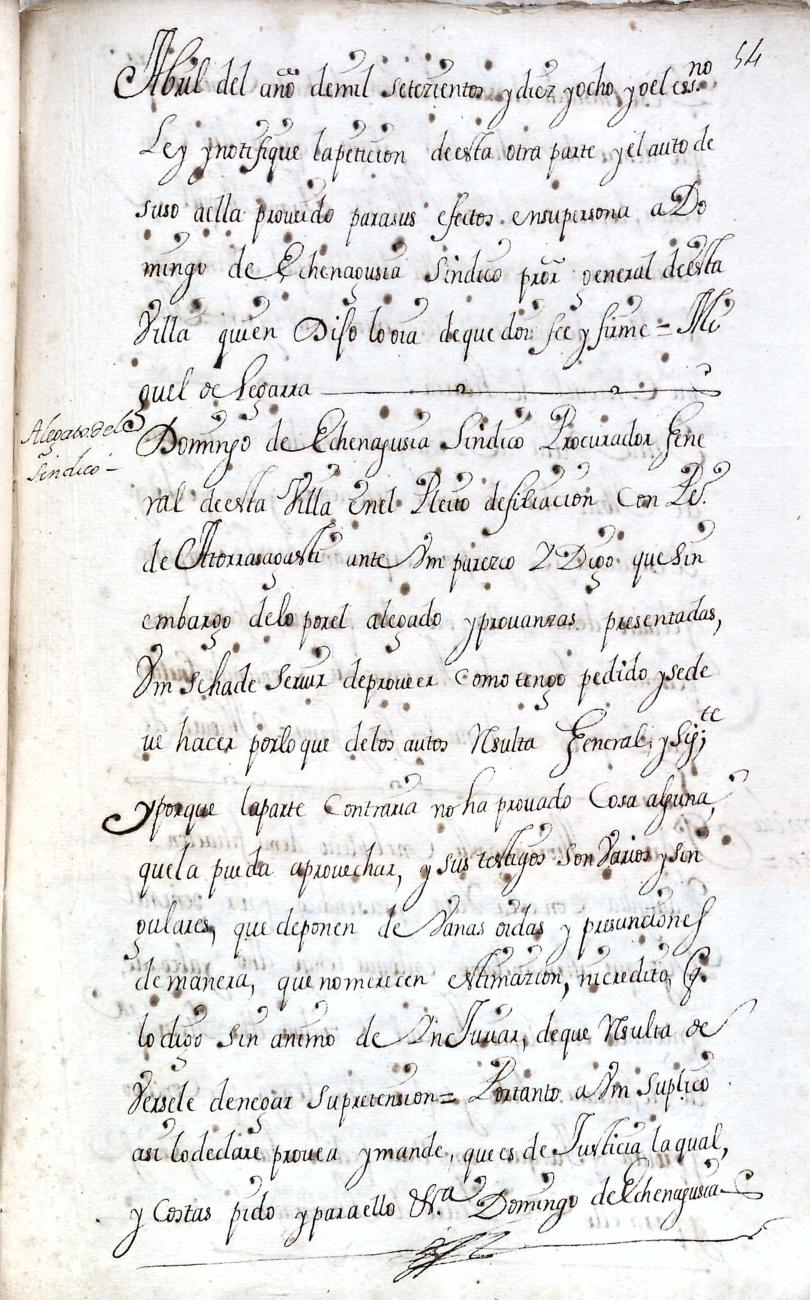 54
Abril del año demil setezientos y diez yocho yo el ess.no
Ley ynotifique lapeticion deesta otra parte, yel auto de
suso aella proueido parasus efectos ensupersona a Do
mingo de Echenagusia Sindico pror general deesta
Villa quien Dijo looia dequedoi fee y firme = Mi
guel de Legarra
Alegato del
Sindico -
Domingo de Echenagusia Sindico Procurador Gene
ral deesta Villa Enel Pleito defiliacion Con Pe.
de Atorrasagasti ante Vm parezco Y Digo que sin
embargo delo porel alegado yprouanzas presentadas,
Vm sehade seruir deproueer Como tengo pedido ysede
ue hacer porlo que delos autos Resulta General, y sig.te
yporque laparte Contraria no ha prouado Cosa alguna,
quela pueda aprouechar, y sus testigos son Varios ysin
gulares, que deponen de Vanas oidas y presunciones
de manera, que nomerecen estimazion, nicredito, q.
lo digo sin animo de InJuriar, deque Resulta de
Versele denegar supretension = Portanto a Vm suplico
asi lodeclare prouea ymande, que es de Justicia la qual,
y Costas pido yparaello &.a Domingo deEchenagusia